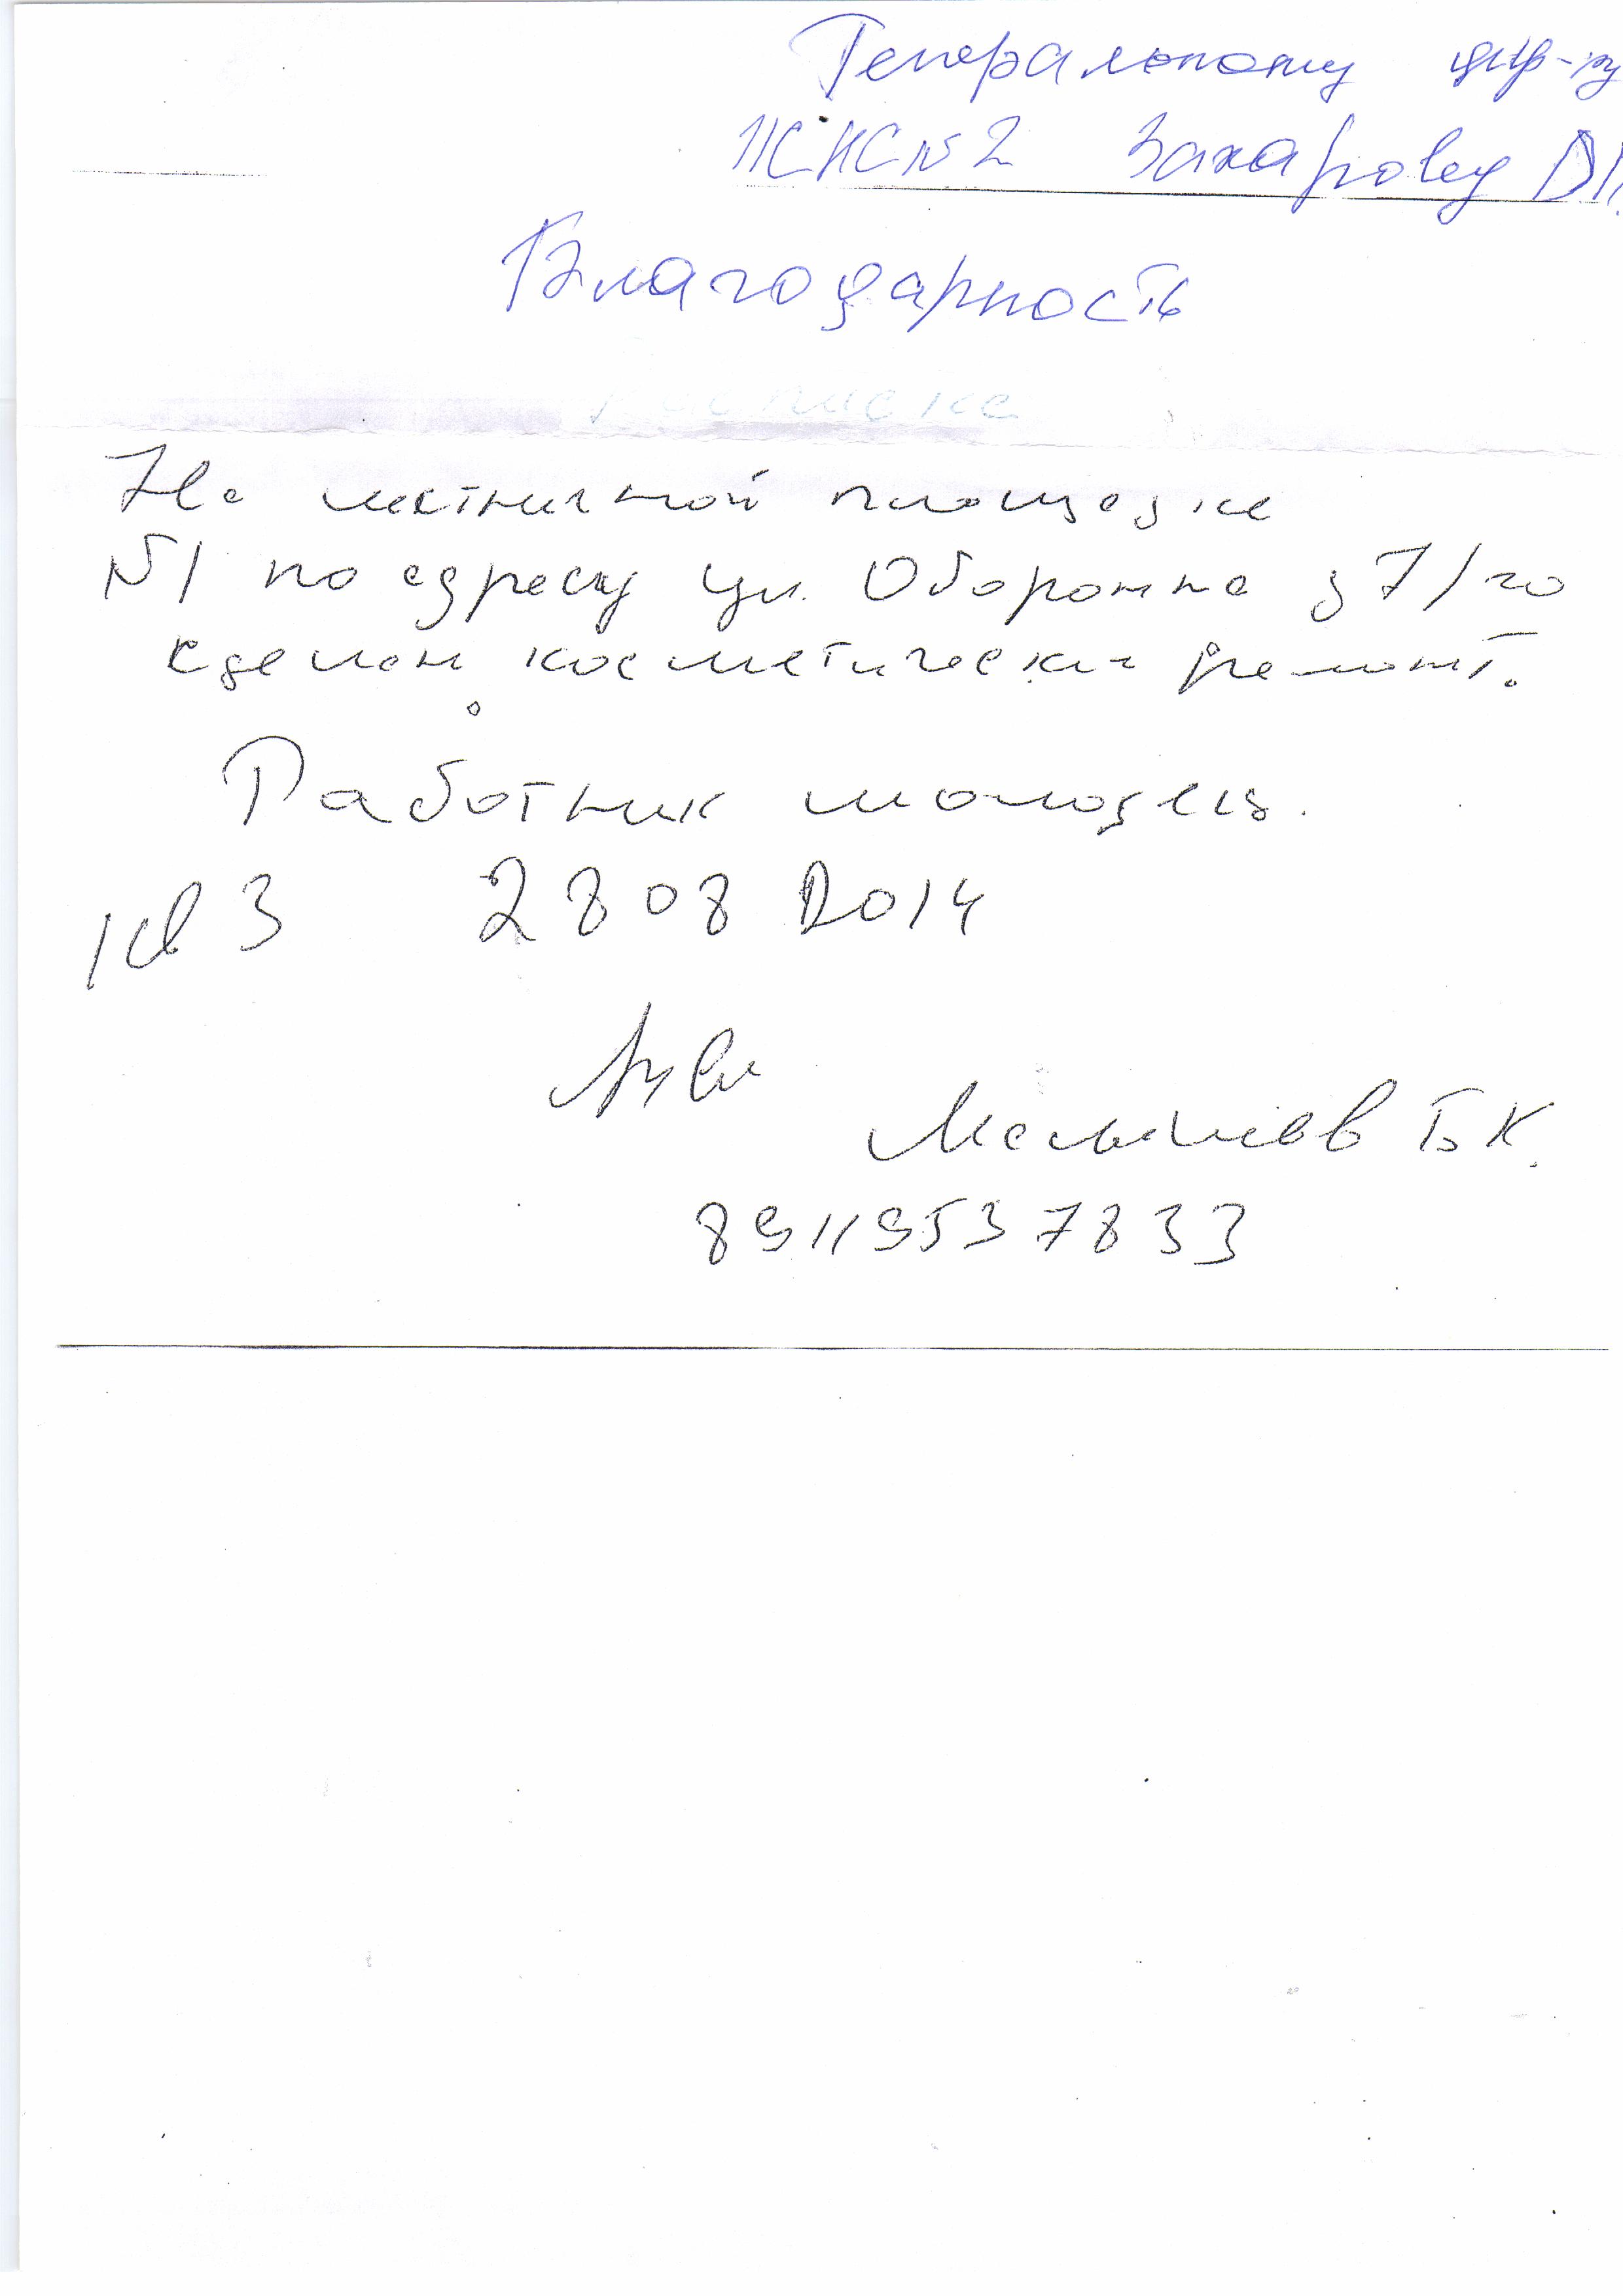 Генеральному дир-ру
ЖКС №2 Захарову Д.П.
Благодарность
На лестничной площадке
№1 по адресу ул. Оборонна д 7/20
сделан косметический ремонт.
Работник молодец.
кв 3 28 08 2014
Б К.
89119537833